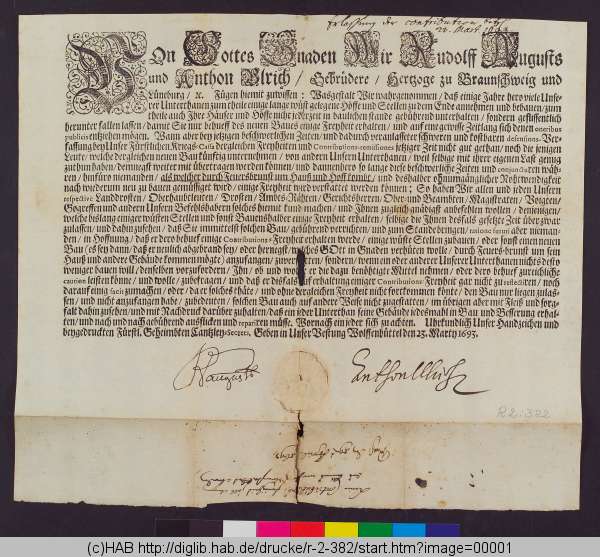 Erlassung der contribution
Von Gottes Gnaden Wir Rudolff Augusts
und Anthon Ulrich / Gebrüdere / Hertzoge zu Braunschweig und
Lüneburg / ꝛc. Fügen hiemit zuwissen: Wasgestalt Wir wahrgenommen / daß einige Jahr hero viele Unse-
rer Unterthanen zum theile einige lange wüst gelegene Höffe und Stellen zu dem Ende annehmen und bebauen / zum
theile auch Ihre Häuser und Höffe nicht jederzeit in baulichem stande gebührend unterhalten / sondern geflissentlich
herunter fallen lassen / damit Sie mit behueff des neuen Baues einige Freyheit erhalten / und auf eine gewisse Zeitlang sich denen oneribus
publicis entziehen mögen. Wann aber bey itzigen beschwerlichen Zeiten und dadurch veranlasseter schweren und kostbaren defensions-Ver-
fassung bey Unser Fürstlichen Kriegs-Cassa dergleichen Freyheiten und Contributions-remissiones jetziger Zeit nicht gut gethan / noch die einigen
Leute / welche dergleichen neuen Bau künftig unternehmen / von andern Unsern Unterthanen / weil selbige mit ihrer eigenen Last genug
zu thun haben / demnegst weiter mit übertragen werden können / und dannenhero so lange diese beschwerliche Zeiten und conjuncturen wäh-
ren / hinfüro niemanden / als welcher durch Feuersbrunst um Hauß und Hoff kömt / und deshalber ohnumgänglicher Nohtwendigkeit
nach wiederum neu zu bauen genüssiget wird / einige Freyheit wird verstattet werden können; So haben Wir allen und jeden Unsern
respective Landdrosten / Oberhaubtleuten / Drosten / Ambs-Rähten / Gerichtsherren / Ober- und Beambten / Magistraten / Voigten /
Gogreffen und andern Unsern Befehlshabern solches hiemit kund machen / und Ihnen zugleich gnädigst anbefehlen wollen / denenjenigen /
welche bislang einiger wüsten Stellen und sonst Baues halber einige Freyheit erhalten / selbige die Ihnen desfals gesetzte Zeit über zwar
zulassen / und dahin zusehen / daß Sie immittelst solchen Bau gebührend verrichten / und zum Stande bringen / ratione futuri aber nieman-
den / in Hoffnung / daß er dero behueff einige Contributions-Freyheit erhalten werde / einige wüste Stellen zubauen / oder sonst einen neuen
Bau (es sey dann / daß er neulich abgebrandt sey / oder demnegst / welches GOtt in Gnaden verhüten wolle / durch Feuersbrunst um sein
Hauß und andere Gebäude kommen mögte) anzufangen / zuverstatten / sondern / wenn ein oder anderer Unser Unterthanen nichts desto
weniger bauen will / denselben vorzufordern / Ihn / ob und woher er die dazu benöhtigte Mittel nehmen / oder dero behuef zureichliche
caution leisten könne / und wolle / zubefragen / und daß er desfals auf erhaltung einiger Contributions-Freyheit gar nicht zu reflectiren / noch
darauf einig facit zumachen / oder da er solches thäte / und ohne dergleichen Freyheit nicht fortkommen könte / den Bau nur liegen zulas-
sen / und nicht anzufangen habe / zubedeuten / solchen Bau auch auf andere Weise nicht zugestatten / im übrigen aber mit Fleiß und sorg-
falt dahin zusehen / und mit Nachdruck darüber zuhalten / daß ein jeder Unterthan seine Gebäude jedesmahl in Bau und Besserung erhal-
ten / und nach und nach gebührend ausflicken und repariren müsse. Wornach ein jeder sich zu achten. Uhrkundlich Unser Handzeichen und
beygedruckten Fürstl. Geheimbten Cantzley-Secrets. Geben in Unser Vestung Wolffenbüttel den 23. Martij 1693.
RAugustus AnthonUlrich
R2:382
(c)HAB http://diglib.hab.de/drucke/r-2-382/start.htm?image=00001